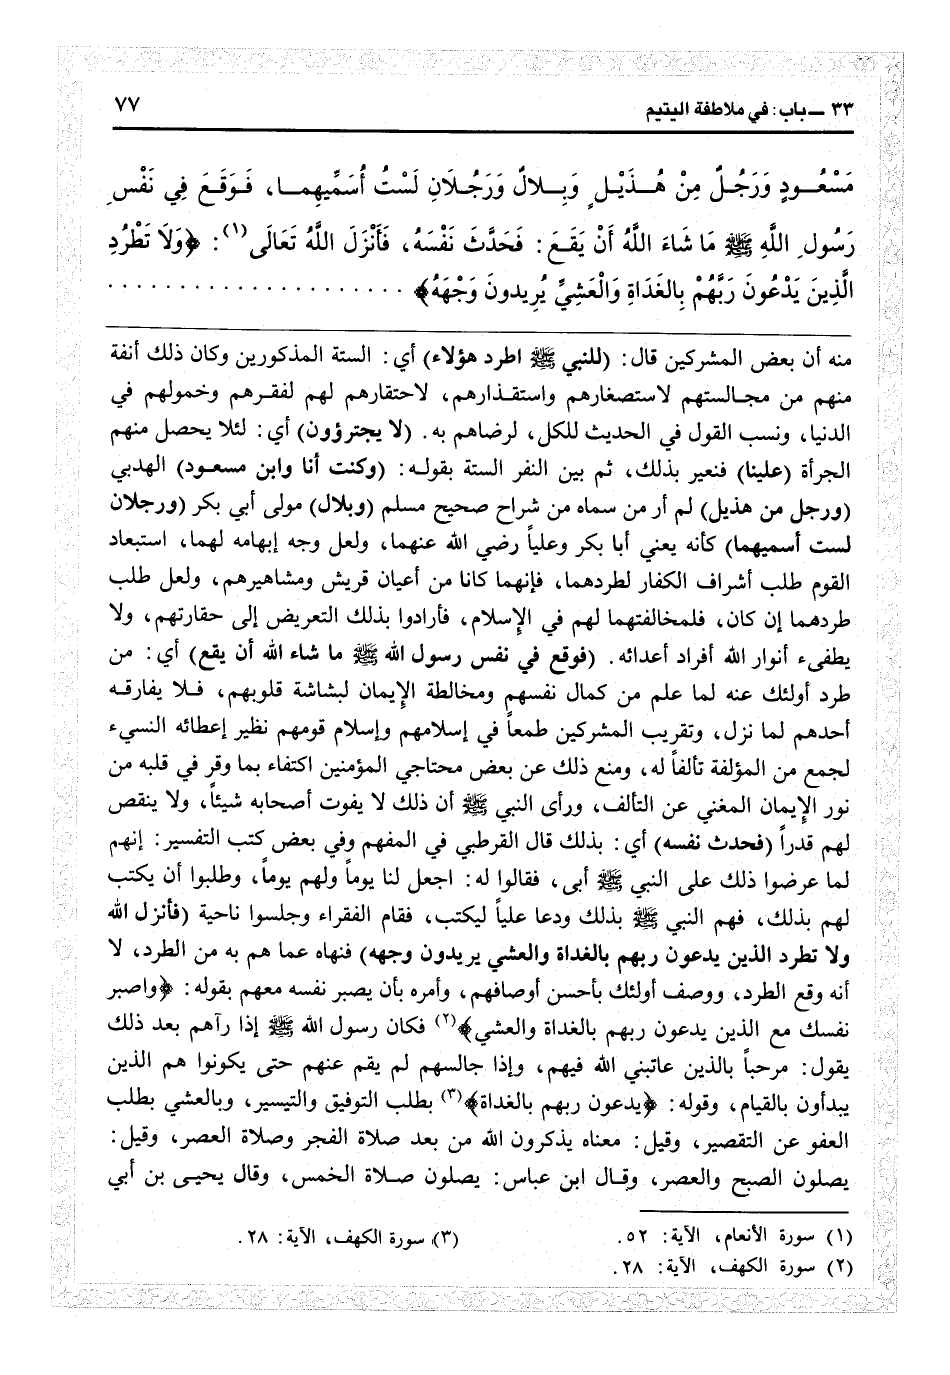 ٣٣ ـ باب: في ملاطفة اليتيم ٧٧
مَسْعُودٍ وَرَجُلٌ مِنْ هُذَيْلٍ وَبِلالٌ وَرَجُلَانِ لَسْتُ أُسَمِّيهِمَا، فَوَقَعَ فِي نَفْسِ
رَسُولِ اللَّهِ ﷺ مَا شَاءَ اللَّهُ أَنْ يَقَعَ: فَحَدَّثَ نَفْسَهُ، فَأَنْزَلَ اللَّهُ تَعَالَى(١): ﴿وَلَا تَطْرُدِ
الَّذِينَ يَدْعُونَ رَبَّهُمْ بِالغَدَاةِ وَالْعَشِيِّ يُرِيدُونَ وَجْهَهُ﴾ . . . . . . . . . . . . . . . . . . . . .
منه أن بعض المشركين قال: (للنبي ﷺ اطرد هؤلاء) أي: الستة المذكورين وكان ذلك أنفة
منهم من مجالستهم لاستصغارهم واستقذارهم، لاحتقارهم لهم لفقرهم وخمولهم في
الدنيا، ونسب القول في الحديث للكل، لرضاهم به. (لا يجترؤون) أي: لئلا يحصل منهم
الجرأة (علينا) فنعير بذلك، ثم بين النفر الستة بقوله: (وكنت أنا وابن مسعود) الهدبي
(ورجل من هذيل) لم أر من سماه من شراح صحيح مسلم (وبلال) مولى أبي بكر (ورجلان
لست أسميهما) كأنه يعني أبا بكر وعلياً رضي الله عنهما، ولعل وجه إبهامه لهما، استبعاد
القوم طلب أشراف الكفار لطردهما، فإنهما كانا من أعيان قريش ومشاهيرهم، ولعل طلب
طردهما إن كان، فلمخالفتهما لهم في الإسلام، فأرادوا بذلك التعريض إلى حقارتهم، ولا
يطفىء أنوار الله أفراد أعدائه. (فوقع في نفس رسول الله ﷺ ما شاء الله أن يقع) أي: من
طرد أولئك عنه لما علم من كمال نفسهم ومخالطة الإيمان لبشاشة قلوبهم، فلا يفارقه
أحدهم لما نزل، وتقريب المشركين طمعاً في إسلامهم وإسلام قومهم نظير إعطائه النسيء
لجمع من المؤلفة تألفاً له، ومنع ذلك عن بعض محتاجي المؤمنين اكتفاء بما وقر في قلبه من
نور الإيمان المغني عن التألف، ورأى النبي ﷺ أن ذلك لا يفوت أصحابه شيئاً، ولا ينقص
لهم قدراً (فحدث نفسه) أي: بذلك قال القرطبي في المفهم وفي بعض كتب التفسير: إنهم
لما عرضوا ذلك على النبي ﷺ أبى، فقالوا له: اجعل لنا يوماً ولهم يوماً، وطلبوا أن يكتب
لهم بذلك، فهم النبي ﷺ بذلك ودعا علياً ليكتب، فقام الفقراء وجلسوا ناحية (فأنزل الله
ولا تطرد الذين يدعون ربهم بالغداة والعشي يريدون وجهه) فنهاه عما هم به من الطرد، لا
أنه وقع الطرد، ووصف أولئك بأحسن أوصافهم، وأمره بأن يصبر نفسه معهم بقوله: ﴿واصبر
نفسك مع الذين يدعون ربهم بالغداة والعشي﴾(٢) فكان رسول الله ﷺ إذا رآهم بعد ذلك
يقول: مرحباً بالذين عاتبني الله فيهم، وإذا جالسهم لم يقم عنهم حتى يكونوا هم الذين
يبدأون بالقيام، وقوله: ﴿يدعون ربهم بالغداة﴾(٣) بطلب التوفيق والتيسير، وبالعشي بطلب
العفو عن التقصير، وقيل: معناه يذكرون الله من بعد صلاة الفجر وصلاة العصر، وقيل:
يصلون الصبح والعصر، وقال ابن عباس: يصلون صلاة الخمس، وقال يحيى بن أبي
(١) سورة الأنعام، الآية: ٥٢. (٣) سورة الكهف، الآية: ٢٨.
(٢) سورة الكهف، الآية: ٢٨.